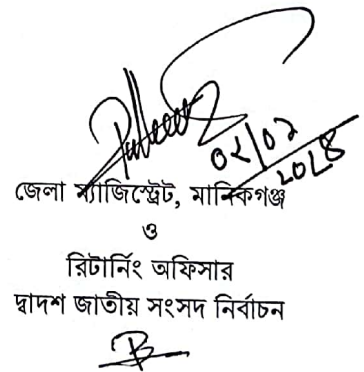 ০২/০১
২০২৪
জেলা ম্যাজিস্ট্রেট, মানিকগঞ্জ
ও
রিটার্নিং অফিসার
দ্বাদশ জাতীয় সংসদ নির্বাচন